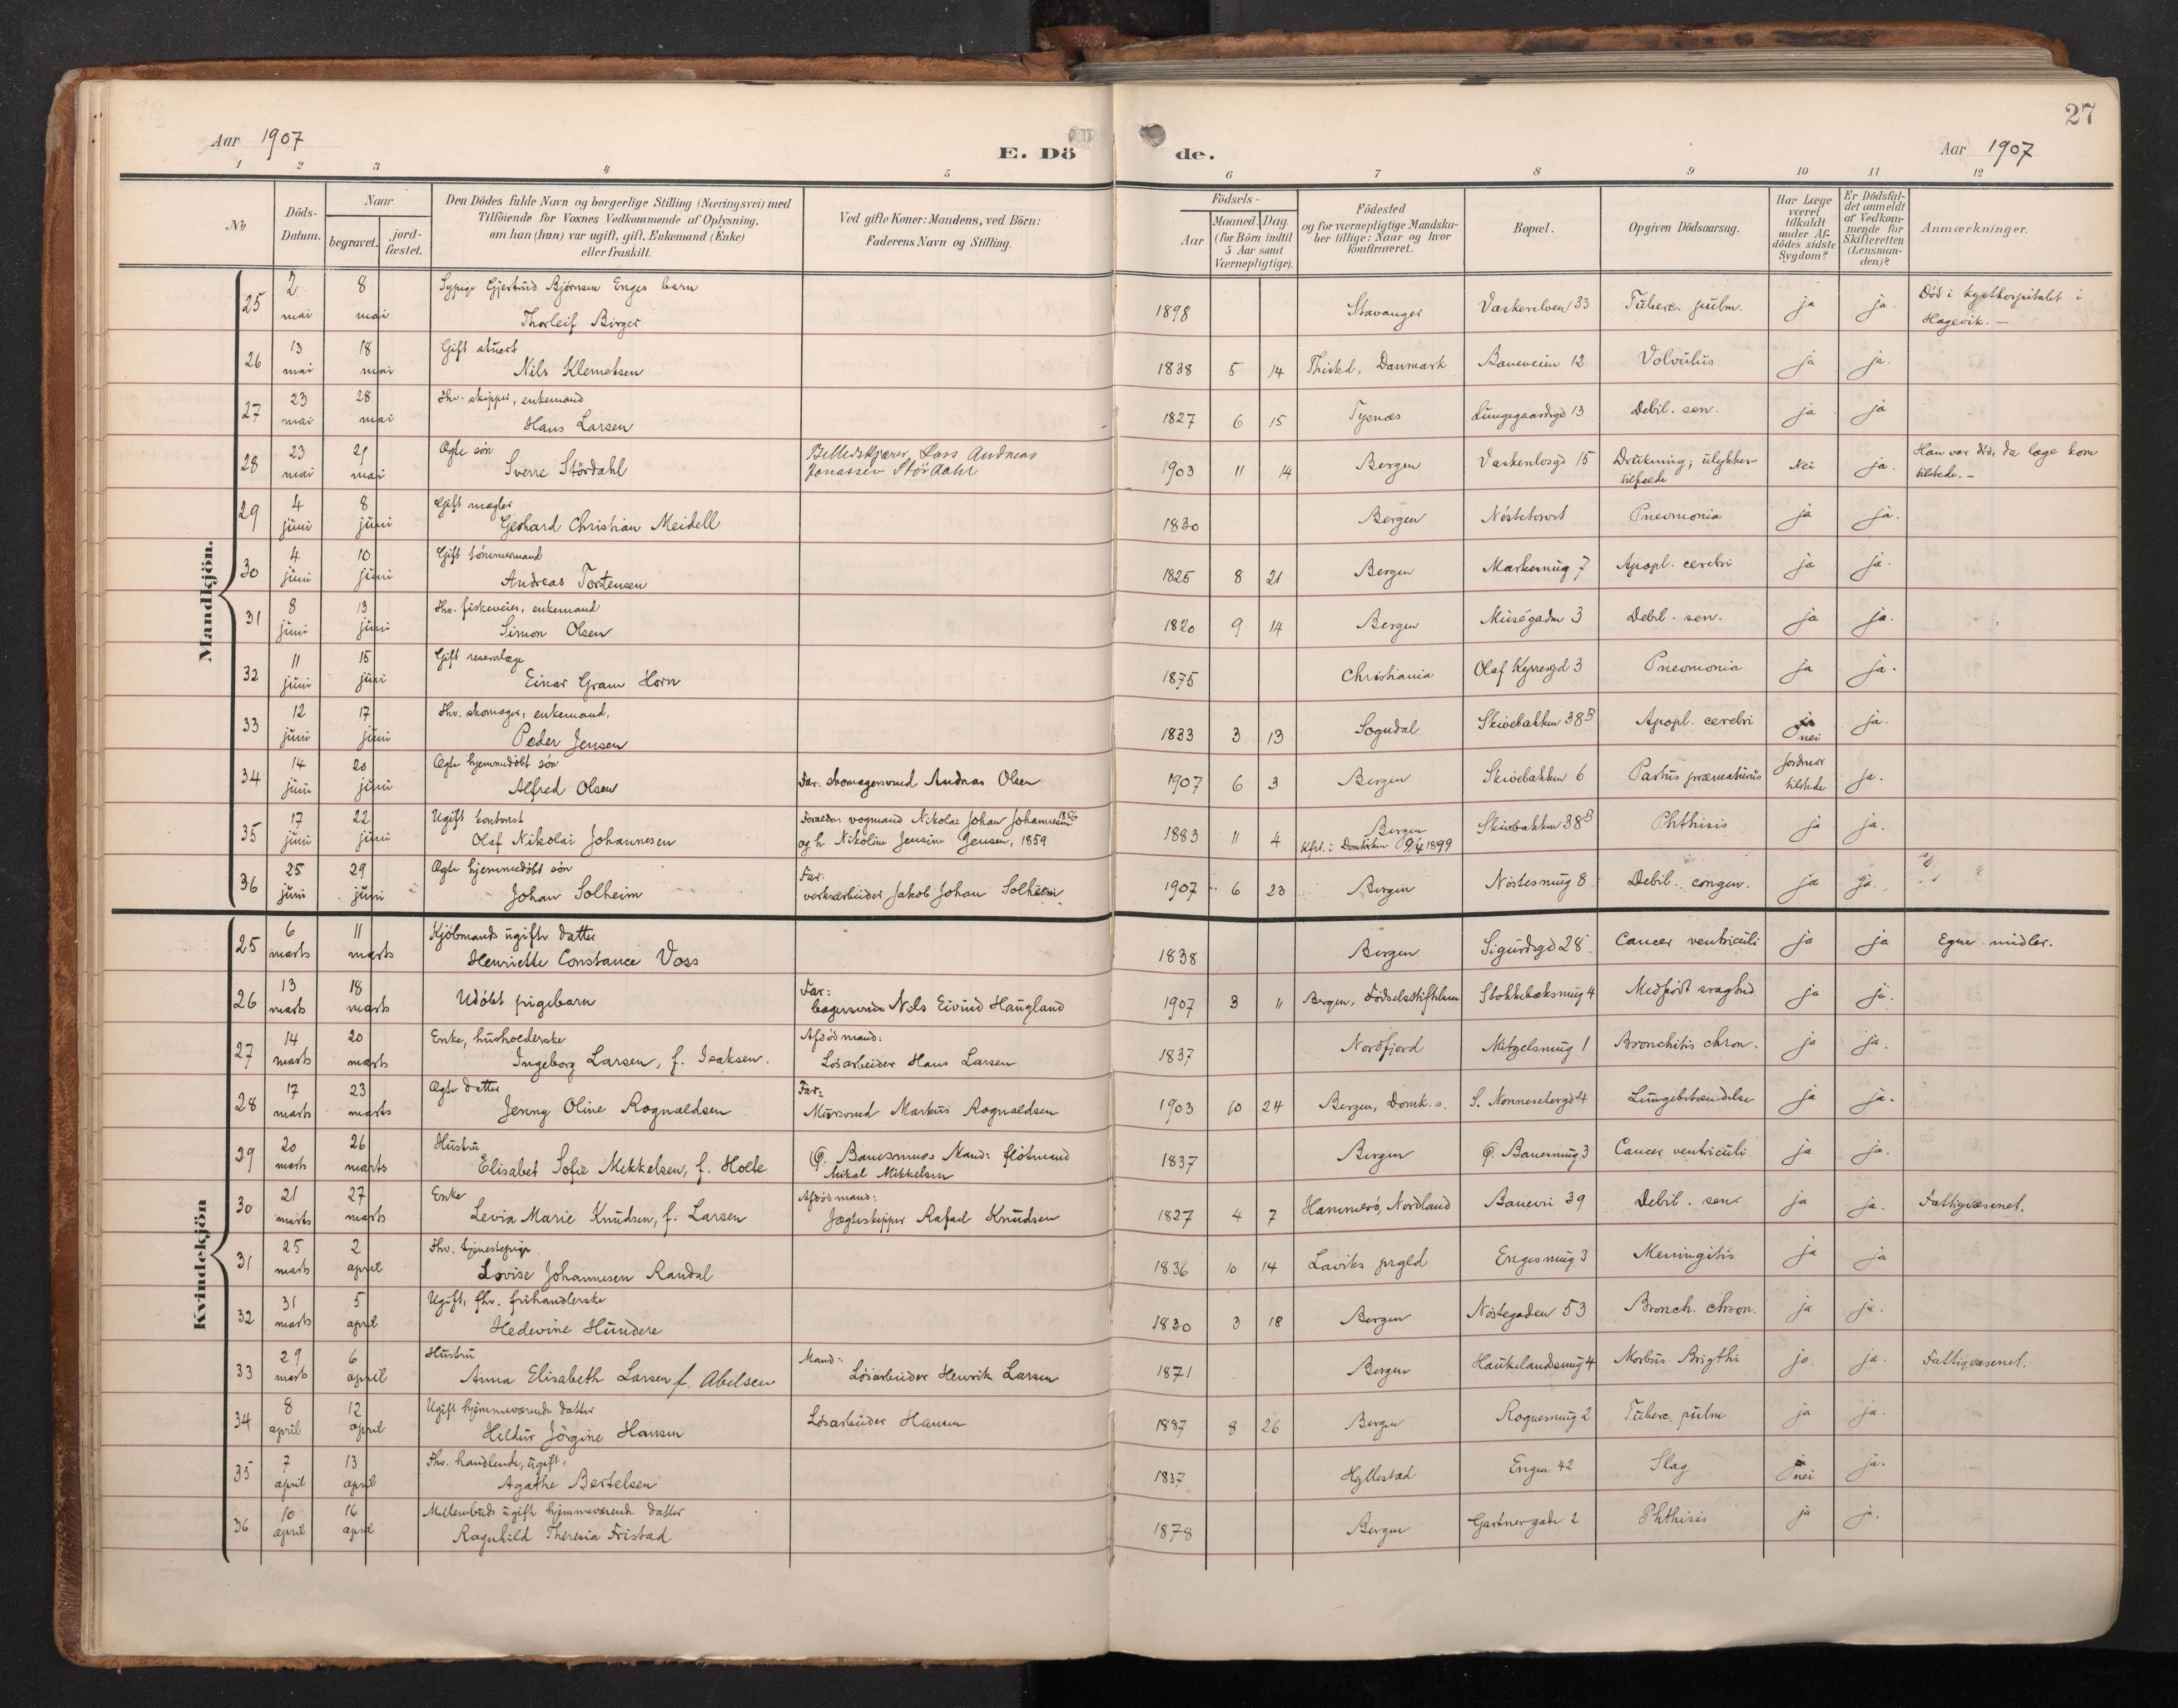 27
Aar 1907
E. Dö de.
Aar 1907
1 2 3 4 5 6 7 8 9 10 11 12
No.
Döds-
Datum.
Naar
begravet.
jord-
fæstet.
Den Dödes fulde Navn og borgerlige Stilling (Næringsvei) med
Tilföiende for Voxnes Vedkommende af Oplysning,
om han (hun) var ugift, gift, Enkemand (Enke)
eller fraskilt.
Ved gifte Koner: Mandens, ved Börn:
Faderens Navn og Stilling.
Födsels-
Aar
Maaned. Dag.
(for Börn indtil
5 Aar samt
Værnepligtige).
Födested
og for værnepligtige Mandska-
ber tillige: Naar og hvor
konfirmeret.
Bopæl.
Opgiven Dödsaarsag.
Har Læge
været
tilkaldt
under Af-
dödes sidste
Sygdom?
Er Dödsfal-
det anmeldt
af Vedkom-
mende for
Skifteretten
(Lensman-
den)?
Anmærkninger.
Mandkjön.
25 2 mai 8 mai Sypige Gjertrud Björnsen Enges barn
Thorleif Birger 1898 Stavanger Vaskerelven 33 Tuberc. pulm. ja ja. Död i kysthospitalet i
Hagevik. —
26 13 mai 18 mai Gift stuert
Nils Klemetsen 1838 5 14 Thisted, Danmark Baneveien 12 Volvulus ja ja.
27 23 mai 28 mai Fhv. skipper, enkemand
Hans Larsen 1827 6 15 Tysnæs Lungegaardsgd 13 Debil. sen. ja ja
28 23 mai 29 mai Ægte sön
Sverre Stördahl Billedskjærer Lars Andreas
Jonassen Stördahl 1903 11 14 Bergen 15 Drukning; ulykkes-
tilfælde Nei ja. Han var död, da læge kom
tilstede. —
29 4 juni 8 juni Gift mægler
Gerhard Christian Meidell 1830 Bergen Nöstetorvet Pneomonia ja ja.
30 4 juni 10 juni Gift tömmermand
Andreas Torstensen 1825 8 21 Bergen Markesmug 7 Apopl. cerebri ja ja.
31 8 juni 13 juni Fhv. fiskeveier, enkemand
Simon Olsen 1820 9 14 Bergen Muségaden 3 Debil. sen. ja ja.
32 11 juni 15 juni Gift reservelæge
Einar Gram Horn 1875 Christiania Olaf Kyrresgd 3 Pneomonia ja ja.
33 12 juni 17 juni Fhv. skomager, enkemand,
Peder Jensen 1833 3 13 Sogndal Skivebakken 38B Apopl. cerebri nei ja.
34 14 juni 20 juni Ægte hjemmedöbt sön
Alfred Olsen Far: skomagersvend Andreas Olsen 1907 6 3 Bergen Skivebakken 6 Partus præmaturus Jordmor
tilstede ja.
35 17 juni 22 juni Ugift kontorist
Olaf Nikolai Johannesen Foreldre vogmand Nikolai Johan Johannesen 1856
og h. Nikoline Jensine Jensen, 1859 1883 11 4 Bergen
Kfst. i Domkirken 9/4 1899 Skivebakken 38B Phthisis ja ja.
36 25 juni 29 juni Ægte hjemmedöbt sön
Johan Solheim Far:
verksarbeider Jakob Johan Solheim 1907 6 23 Bergen Nöstesmug 8 Debil. congen. ja ja.
Kvindekjön
25 6 marts 11 marts Kjöbmands ugifte datter
Henriette Constance Voss 1838 Bergen Sigurdsgd 28 Cancer ventriculi ja ja Egne midler.
26 13 marts 18 marts Udöbt pigebarn Far:
bagersvend Nils Eivind Haugland 1907 3 11 Bergen, Födselsstiftelsen Stokkebæksmug 4 Medfödt svaghed ja ja.
27 14 marts 20 marts Enke, husholderske
Ingeborg Larsen, f. Isaksen. Afdöd mand:
Lösarbeider Hans Larsen 1837 Nordfjord Nitzelsmug 1 Bronchitis chron. ja ja.
28 17 marts 23 marts Ægte datter
Jenny Oline Rognaldsen Far:
Mursvend Markus Rognaldsen 1903 10 24 Bergen, Domk. s. S. Nonnesetergd 4 Lungebetændelse ja ja.
29 20 marts 26 marts Hustru
Elisabet Sofie Mikkelsen, f. Holte Ö. Banesmues Mand: flötmand
Mikal Mikkelsen 1837 Bergen Ö. Banesmug 3 Cancer ventriculi ja ja.
30 21 marts 27 marts Enke
Levia Marie Knudsen, f. Larsen Afdöd mand:
Jægteskipper Rafael Knudsen 1827 4 7 Hammerö, Nordland Banevei 39 Debil. sen. ja ja. Fattigvæsenet.
31 25 marts 2 april Fhv. tjenestepige
Lovise Johannesen Randal 1836 10 14 Laviks prgld Engesmug 3 Meningitis ja ja
32 31 marts 5 april Ugift, fhv. frihandlerske
Hedevine Hundere 1830 3 18 Bergen Nöstegaden 53 Bronch. chron. ja ja.
33 29 marts 6 april Hustru
Anna Elisabeth Larsen f. Abelsen Mand:
Lösarbeider Henrik Larsen 1871 Bergen Haukelandsmug 4 Morbus Brigthi ja ja. Fattigvæsenet.
34 8 april 12 april Ugift hjemmeværende datter
Hildur Jörgine Hansen Lösarbeider Hansen 1887 8 26 Bergen Rognesmug 2 Tuberc. pulm ja ja.
35 7 april 13 april Fhv. handlende, ugift,
Agathe Bertelsen 1837 Hyllestad Engen 42 Slag nei ja.
36 10 april 16 april Mellembuds ugift hjemmeværende datter
Ragnhild Theresia Fristad 1878 Bergen Gartnergade 2 Phthisis ja ja.